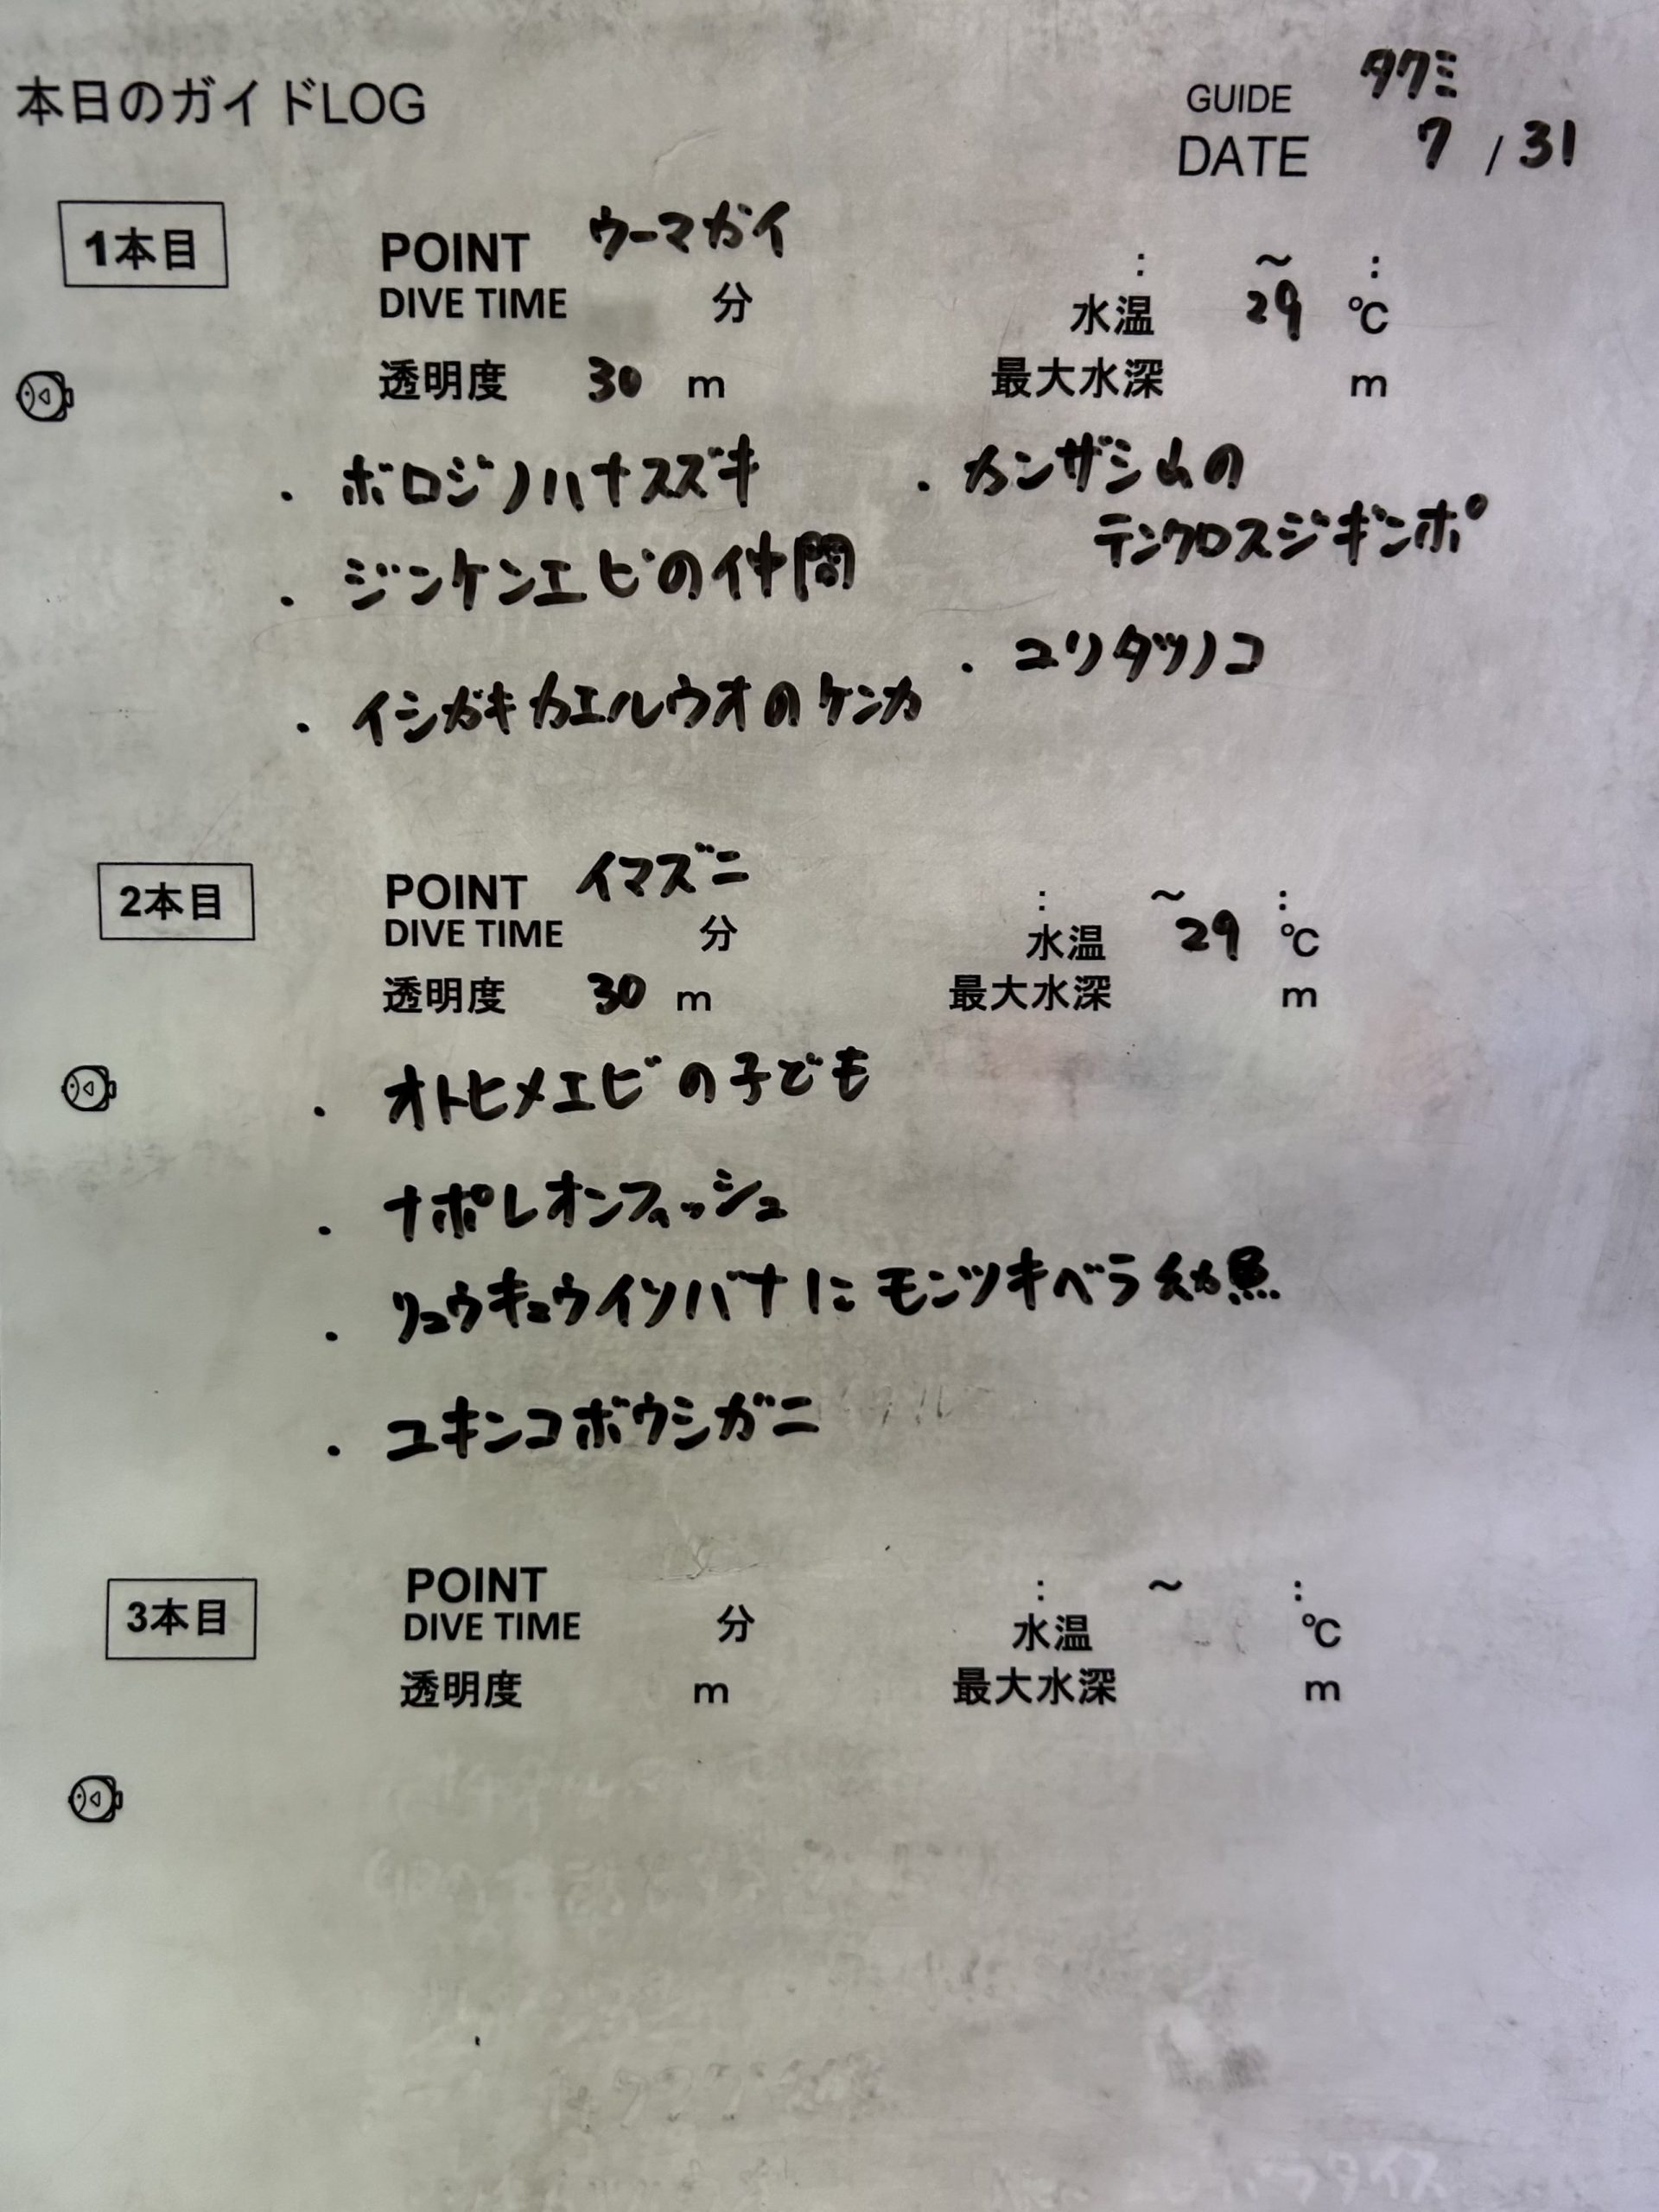 本日のガイドLOG
GUIDE タクミ
DATE 7 / 31
1本目
POINT ウーマガイ : ～ :
DIVE TIME 分 水温 29 ℃
透明度 30 m 最大水深 m
・ボロジノハナスズキ
・ジンケンエビの仲間
・イシガキカエルウオのケンカ
・カンザシ山の
テンクロスジギンポ
・ユリタツノコ
2本目
POINT イマズニ : ～ :
DIVE TIME 分 水温 29 ℃
透明度 30 m 最大水深 m
・オトヒメエビの子ども
・ナポレオンフィッシュ
・リュウキュウイソバナにモンツキベラ幼魚
・ユキンコボウシガニ
3本目
POINT : ～ :
DIVE TIME 分 水温 ℃
透明度 m 最大水深 m